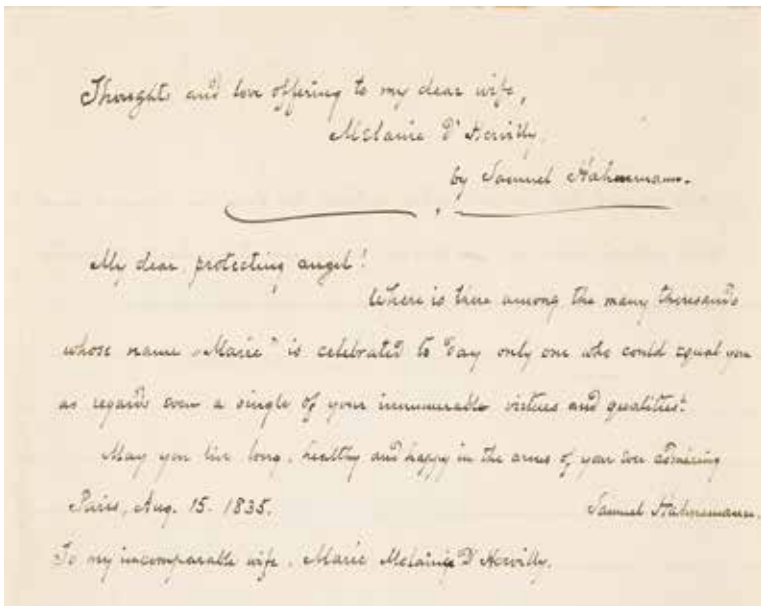 Thoughts and love offering to my dear wife,
Melanie D' Hervilly,
by Samuel Hahnemann.
My dear, protecting angel!
Where is there among the many thousands
whose name „Marie” is celebrated to day only one who could equal you
as regards even a single of your innumerable virtues and qualities?
May you live long, healthy and happy in the arms of your ever admiring
Paris, Aug. 15. 1835. Samuel Hahnemann.
To my incomparable wife, Marie Melanie D' Hervilly.